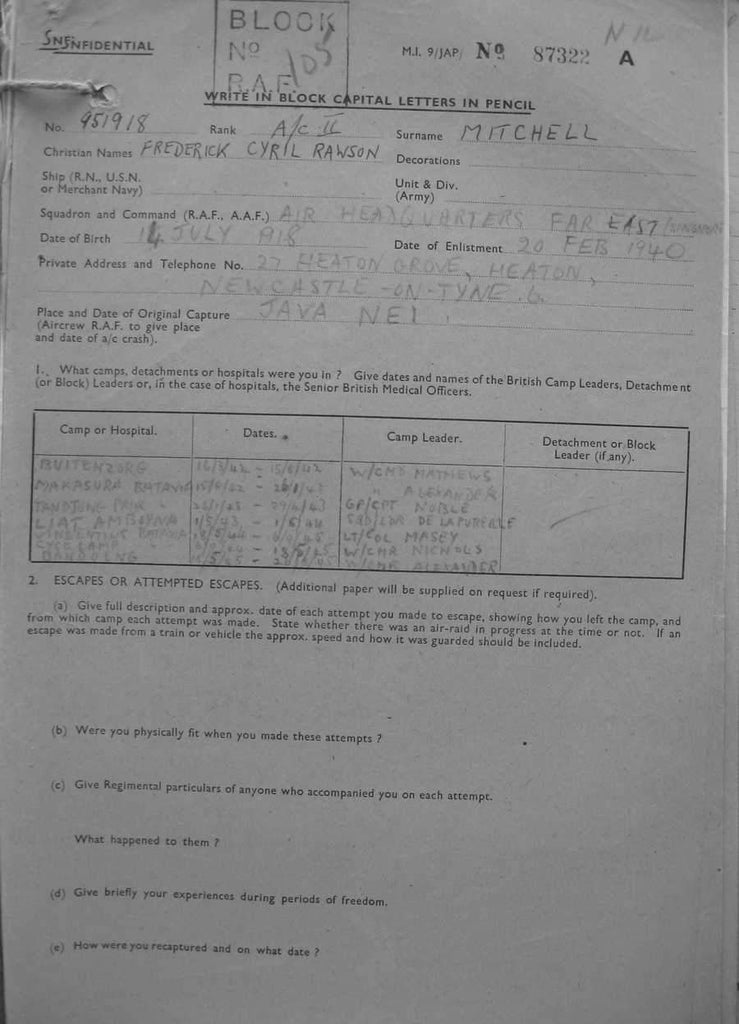 BLOCK
Nº 105
R.A.F.
CONFIDENTIAL
M.I. 9/JAP/ Nº 87322 A
NIL
WRITE IN BLOCK CAPITAL LETTERS IN PENCIL
No. 951918 Rank A/C II Surname MITCHELL
Christian Names FREDERICK CYRIL RAWSON Decorations
Ship (R.N., U.S.N. or Merchant Navy) Unit & Div. (Army)
Squadron and Command (R.A.F., A.A.F.) AIR HEADQUARTERS FAR EAST/
Date of Birth 14 JULY 1918 Date of Enlistment 20 FEB 1940
Private Address and Telephone No. 27 HEATON GROVE, HEATON,
NEWCASTLE-ON-TYNE. 6
Place and Date of Original Capture JAVA NEI.
(Aircrew R.A.F. to give place
and date of a/c crash).
1. What camps, detachments or hospitals were you in ? Give dates and names of the British Camp Leaders, Detachment
(or Block) Leaders or, in the case of hospitals, the Senior British Medical Officers.
Camp or Hospital. Dates. Camp Leader. Detachment or Block Leader (if any).
BUITENZORG 16/3/42 - 15/6/42 W/CMD MATHEWS
MAKASURA BATAVIA 15/6/42 - " ALEXANDER
TANDJONG PRIOK - 29/4/43 GP/CPT NOBLE
LIAT AMBOYNA 1/5/43 - SQD/LDR DE LA PUREBLE
BATAVIA LT/COL MASEY
CAMP W/CMR NICHOLS
BANDOENG ALEXANDER
2. ESCAPES OR ATTEMPTED ESCAPES. (Additional paper will be supplied on request if required).
(a) Give full description and approx. date of each attempt you made to escape, showing how you left the camp, and
from which camp each attempt was made. State whether there was an air-raid in progress at the time or not. If an
escape was made from a train or vehicle the approx. speed and how it was guarded should be included.
(b) Were you physically fit when you made these attempts ?
(c) Give Regimental particulars of anyone who accompanied you on each attempt.
What happened to them ?
(d) Give briefly your experiences during periods of freedom.
(e) How were you recaptured and on what date ?